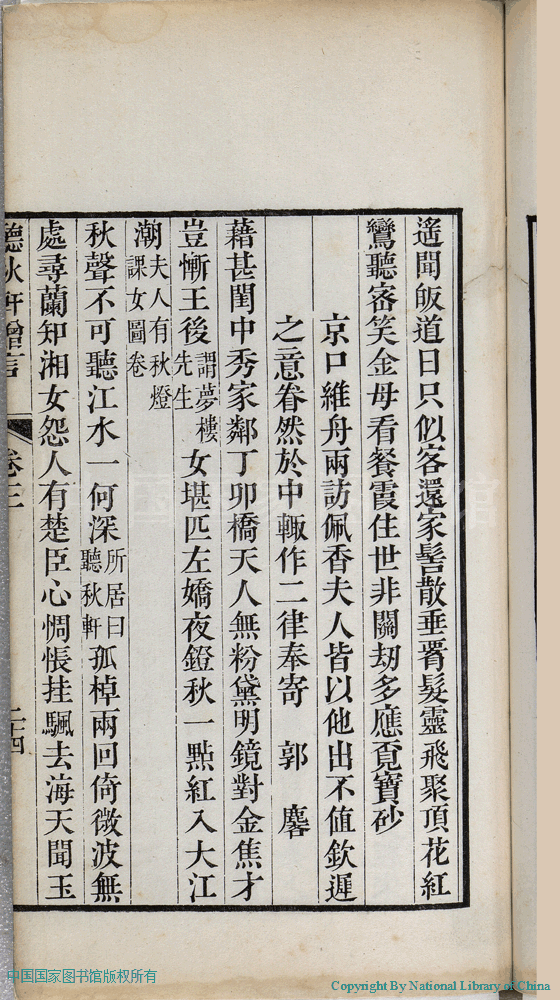 遙聞皈道日只似客還家髻散垂胥髮靈飛聚頂花紅
鸞聽宻笑金母看餐霞住世非關劫多應覓寶砂
京口維舟兩訪佩香夫人皆以他出不值欽遲
之意眷然於中輙作二律奉寄 郭 麐
藉甚閨中秀家鄰丁卯橋天人無粉黛明鏡對金焦才
豈慚王後謂夢樓先生女堪匹左嬌夜鐙秋一點紅入大江
潮夫人有秋燈課女圖卷
秋聲不可聽江水一何深所居曰聽秋軒孤棹兩回倚微波無
處尋蘭知湘女怨人有楚臣心惆悵挂颿去海天聞玉
聽秋軒贈言 卷三 二十四
中国国家图书馆版权所有
Copyright By National Library of China